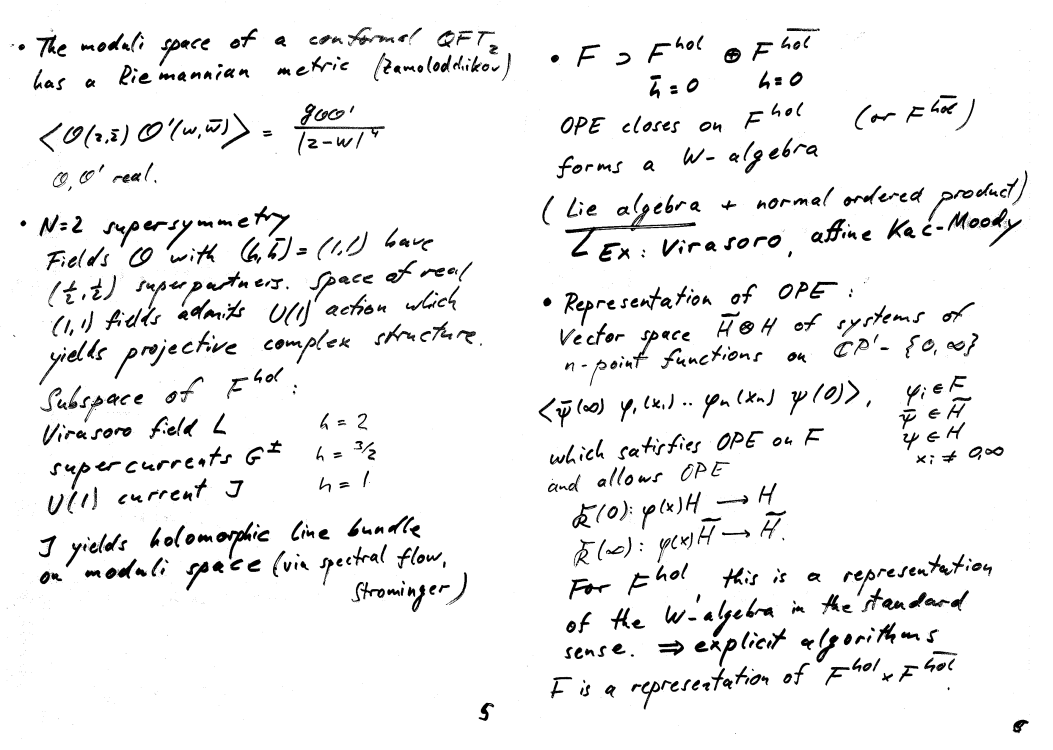 • The moduli space of a conformal QFT₂
has a Riemannian metric (Zamolodchikov)
⟨O(z,z̄) O'(w,w̄)⟩ = g_OO' / |z-w|⁴
O, O' real.
• N=2 supersymmetry
Fields O with (h,h̄) = (1,1) have
(½,½) superpartners. Space of real
(1,1) fields admits U(1) action which
yields projective complex structure.
Subspace of F^hol :
Virasoro field L h = 2
supercurrents G^± h = 3/2
U(1) current J h = 1
J yields holomorphic line bundle
on moduli space (via spectral flow,
Strominger)
5
• F ⊃ F^hol ⊕ F^\overline{hol}
h̄=0 h=0
OPE closes on F^hol (or F^\overline{hol})
forms a W-algebra
(Lie algebra + normal ordered product)
Ex: Virasoro, affine Kac-Moody
• Representation of OPE :
Vector space H̃⊗H of systems of
n-point functions on CP¹- {0,∞}
⟨ψ̄(∞) φ₁(x₁) .. φn(xn) ψ(0)⟩, φi ∈ F
ψ̄ ∈ H̃
ψ ∈ H
xi ≠ 0,∞
which satisfies OPE on F
and allows OPE
(0): φ(x)H → H
(∞): φ(x)H̃ → H̃.
For F^hol this is a representation
of the W-algebra in the standard
sense. ⇒ explicit algorithms
F is a representation of F^hol × F^\overline{hol}.